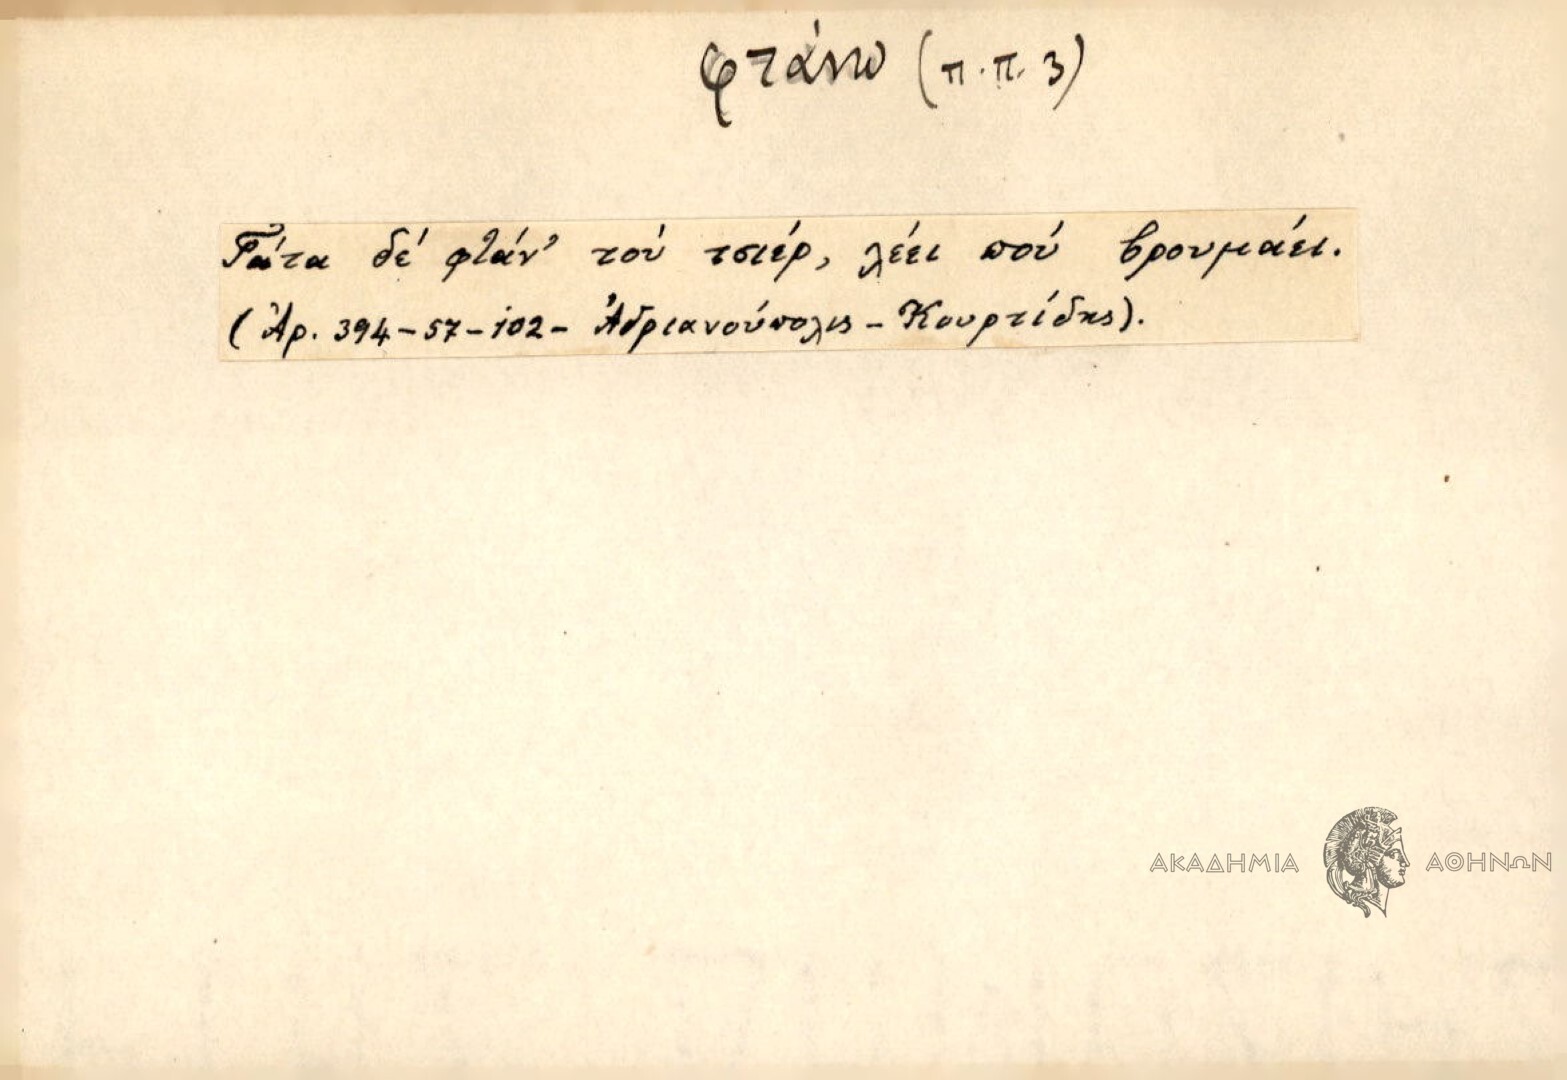 φτάνω (π.π. 3)
Γάτα δέ φτάν' τού τσιέρ, λέει πού βρουμάει.
(Ἀρ. 394-57-102- Ἀδριανούπολις - Κουρτίδης).
ΑΚΑΔΗΜΙΑ ΑΘΗΝΩΝ